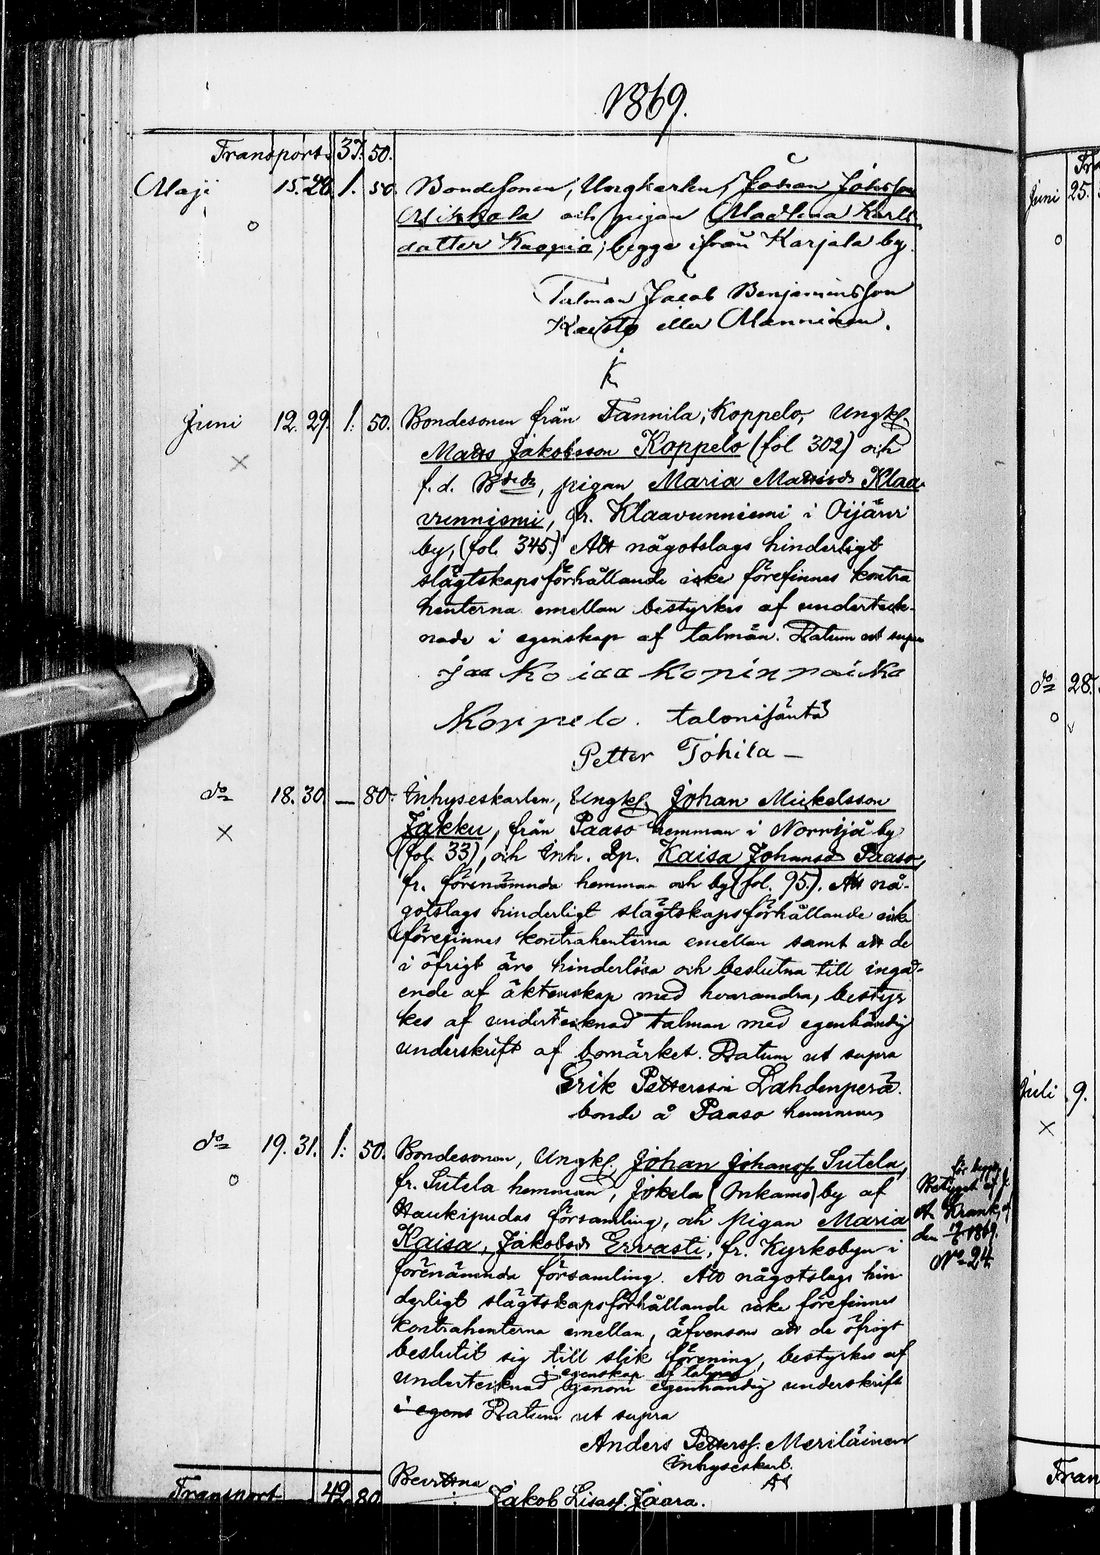 1869.
Transport. 37. 50.
Maji 15. 28. 1. 50. Bondesonen, Ungkarlen, Johan Johnsson
Miskala och pigan Madlena Karls
datter Kuopio, begge ifrån Karjala by.
Talman Jacob Benjaminsson
Kaisto eller Manninen.
K
Juni 12. 29. 1. 50. Bondesonen från Tannila, Koppelo, Ungk.
Matts Jakobsson Koppelo (fol 302) och
f. d. Bdedr, pigan Maria Mattsdr Klaa-
vunniemi, fr. Klaavunniemi i Oijärvi
by, (fol. 345.) Att någotslags hinderligt
slägtskapsförhållande icke förefinnes kontra
henterna emellan bestyrkes af underteck-
nade i egenskap af talmän. Datum ut supra
Koppelo. talonisäntä
Petter Tohila –
do 18. 30. – 80. Inhyseskarlen, Ungk. Johan Mickelsson
Jakku, från Paaso hemman i Norrijå by
(fol. 33), och Inh. Dr. Kaisa Johansdr Paaso,
fr. förenämnda hemman och by (fol. 95.). Att nå-
gotslags hinderligt slägtskapsförhållande icke
förefinnes kontrahenterna emellan samt att de
i öfrigt äro hinderlösa och beslutna till ingå-
ende af äktenskap med hvarandra, bestyr
kes af undertecknad talman med egenhändig
underskrift af bomärket. Datum ut supra
Erik Pettersson Lahdenperä.
bonde å Paaso hemman
do 19. 31. 1. 50. Bondesonen, Ungk. Johan Johanss. Sutela,
fr. Sutela hemman, Jokela (Onkamo) by af
Haukipudas församling, och pigan Maria
Kaisa, Jakobsdr Ervasti, fr. Kyrkobyn i
förenämnda församling. Att någotslags hin
derligt slägtskapsförhållande icke förefinnes
kontrahenterna emellan, äfvensom att de öfrigt
beslutit sig till slik förening, bestyrkes af
i egenskap af talman
undertecknad genom egenhändig underskrift
i egens Datum ut supra
Anders Petterss. Meriläinen
Inhyseskarl.
Bevittna
Jakob Lisass. Jaara.
Transport 42. 80.
för
Betyget af
A. Krank
den 1869.
No 24.
Juni 25.
do 28.
Juli 9.
Tran